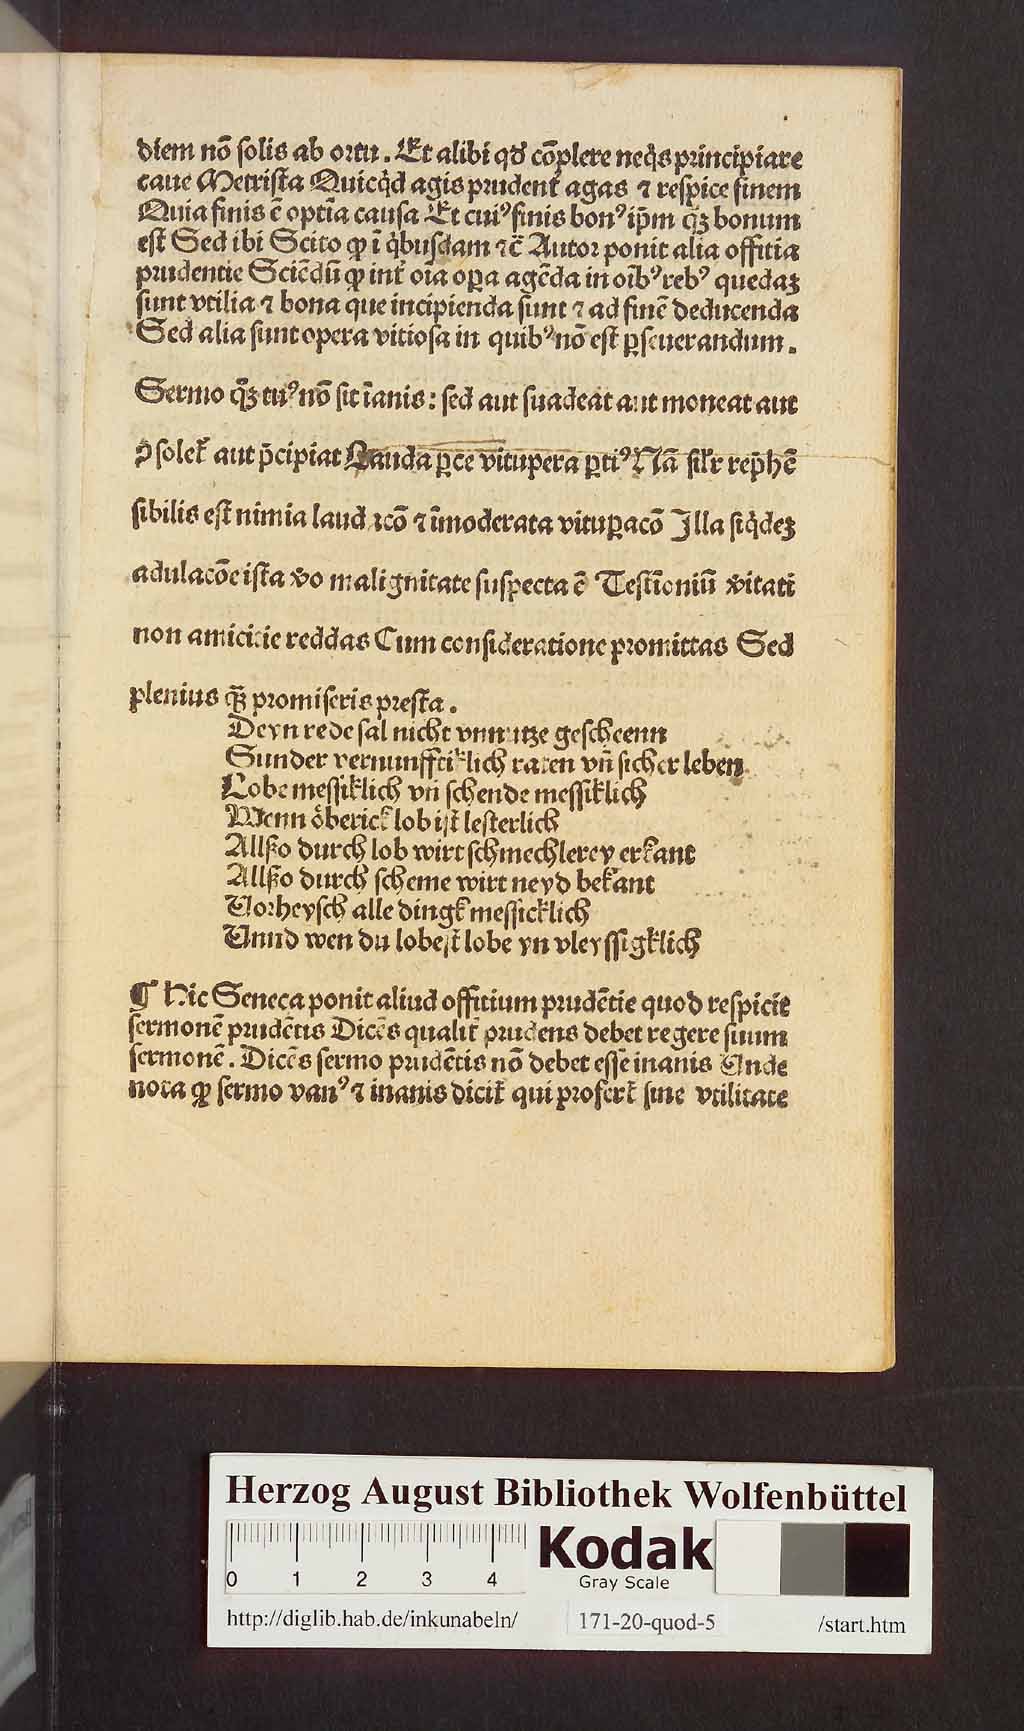 diem nō solis ab ortu. Et alibi qđ cōplere neq̇s principiare
caue Metrista Quicq̇d agis prudent̄ agas ⁊ respice finem
Quia finis ē optīa causa Et cuiꝰ finis bonꝰ ip̄m qꝫ bonum
est Sed ibi Scito ꝙ ī q̇busdam ⁊c̄ Autor ponit alia offitia
prudentie Sciēdū ꝙ int̄ oīa oꝑa agēda in oībꝰ rebꝰ quedaꝫ
sunt vtilia ⁊ bona que incipienda sunt ⁊ ad finē deducenda
Sed alia sunt opera vitiosa in quibꝰ nō est ꝑseuerandum.
Sermo qꝫ tuꝰ nō sit īanis: sed aut suadeat aut moneat aut
ꝯsolet̄ aut p̄cipiat Lauda ꝑce vitupera ꝑtiꝰ Nā sil̄r rep̄hē
sibilis est nimia laudacō ⁊ īmoderata vituꝑacō Illa siq̇deꝫ
adulacōe ista v̄o malignitate suspecta ē Testīoniū v̄itati
non amicicie reddas Cum consideratione promittas Sed
plenius qꝫ̄ promiseris presta.
Deyn rede sal nicht vnnutze gescheenn
Sunder vernunfftiklich raten vn̄ sicher leben
Lobe messiklich vn̄ schende messiklich
Wenn öberick lob ist lesterlich
Allßo durch lob wirt schmechlerey erkant
Allßo durch scheme wirt neyd bekant
Vorheysch alle dingk messicklich
Vnnd wen du lobest lobe yn vleyssigklich
¶ Hic Seneca ponit aliud offitium prudētie quod respicit
sermonē prudētis Dicēs qualit̄ prudens debet regere suum
sermonē. Dicēs sermo prudētis nō debet esse inanis Vnde
nota ꝙ sermo vanꝰ ⁊ inanis dicit̄ qui profert̄ sine vtilitate
Herzog August Bibliothek Wolfenbüttel
0 1 2 3 4
Kodak
Gray Scale
http://diglib.hab.de/inkunabeln/ 171-20-quod-5 /start.htm